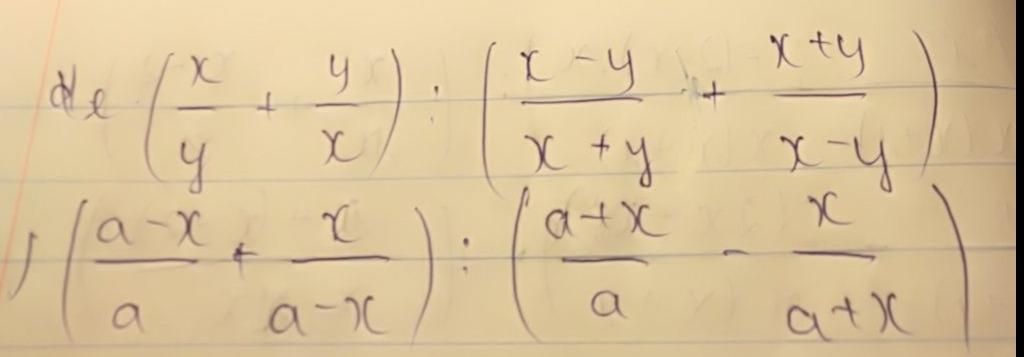 de (x/y + y/x) : (x-y/x+y + x+y/x-y)
) (a-x/a + x/a-x) : (a+x/a - x/a+x)